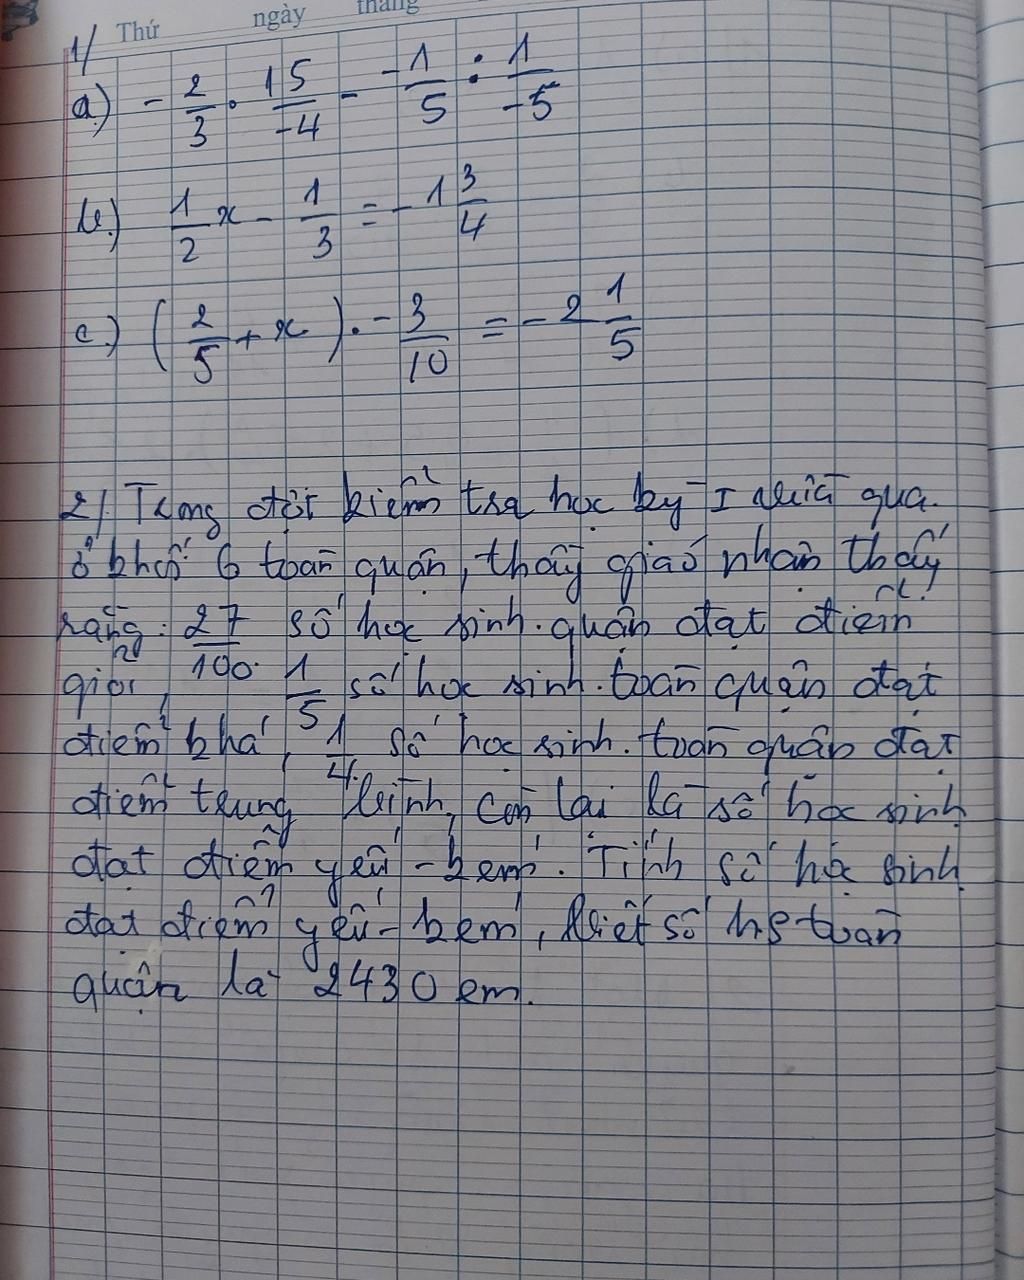 Thứ ngày tháng
1/
a.) - 2/3 . 15/-4 - -1/5 : 1/-5
b.) 1/2 x - 1/3 = -1 3/4
c.) ( 2/5 + x ) . -3/10 = -2 1/5
2/. Trong đợt kiểm tra học kỳ I vừa qua.
ở khối 6 toàn quận, thầy giáo nhận thấy
rằng: 27/100 số học sinh. quận đạt điểm
giỏi, 1/5 số học sinh. toàn quận đạt
điểm khá, 1/4 số học sinh. toàn quận đạt
điểm trung bình, còn lại là số học sinh
đạt điểm yếu - kém. Tính số học sinh
đạt điểm yếu - kém, biết số hs toàn
quận là 2430 em.